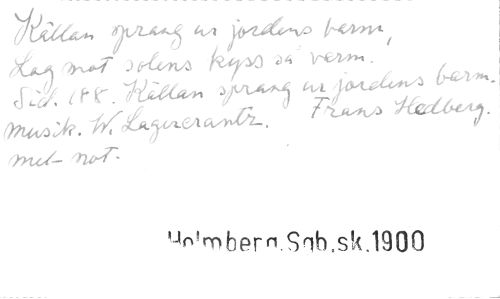 Källan sprang ur jordens barm,
Lag mot solens kyss så varm.
Sid. 188. Källan sprang ur jordens barm.
musik. W. Lagercrantz. Frans Hedberg.
med not.
Holmberg.Sgb.sk.1900